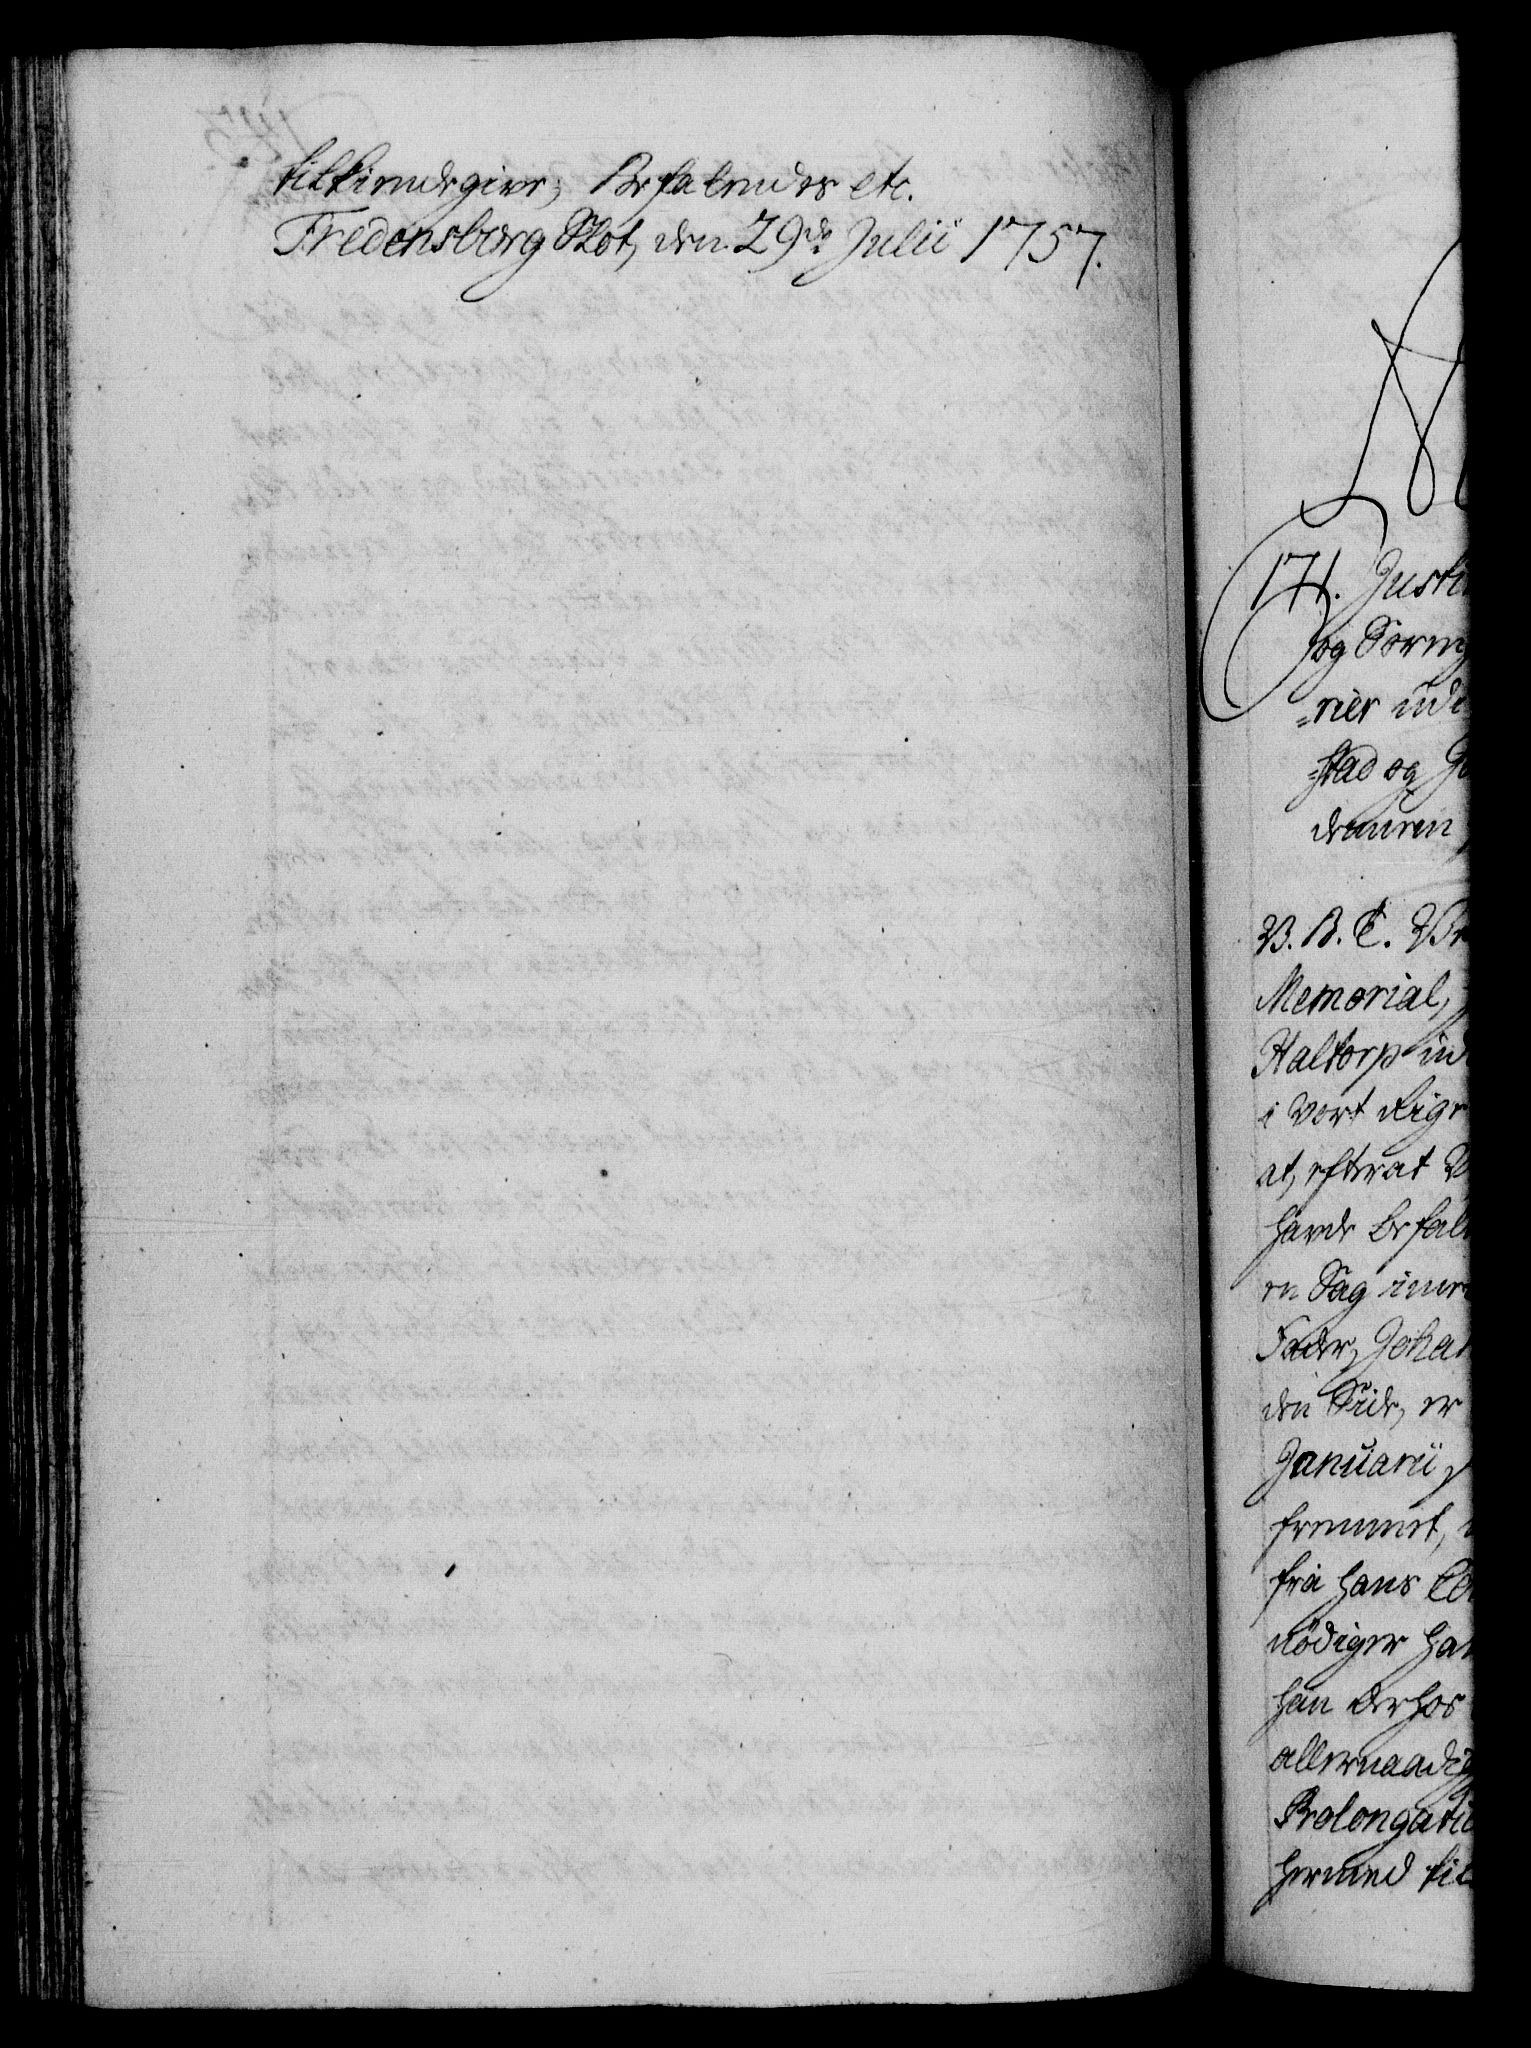 tilkiendegive, Befalendes etc.
Fredensborg Slot, den 29de Julii 1757.
171. Justi
og Soren
=rier udi
=stad og
V. B. T. Vor
Memorial,
Haltorp ud
i Vort Rige
at, efterat
havde befal
en Sag imel
Fader, Johan
den Side, er
Januarii,
fremmet,
fra hans
nødiger han
han derhos
allernaadig
Prolongatio
hermed til